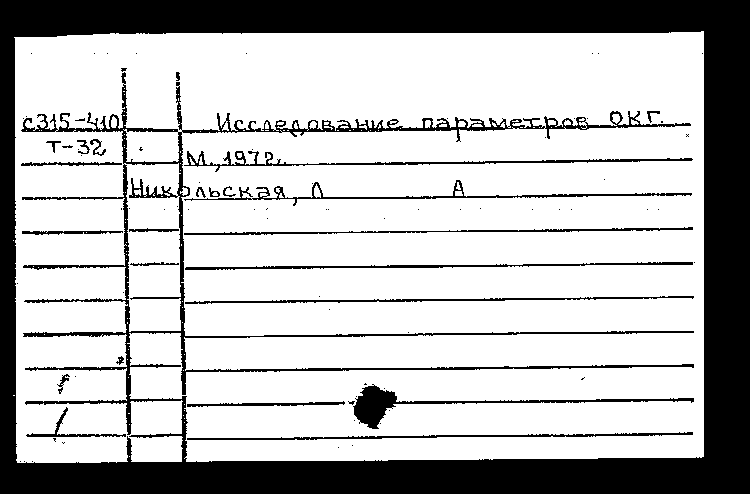 с315-410 Исследование параметров ОКГ.
Т-32 М., 1972.
Никольская, Л А